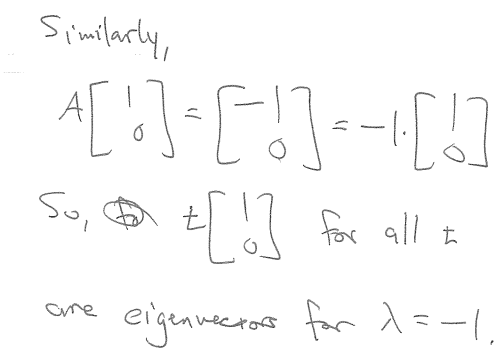 Similarly,
A [1 0] = [-1 0] = -1. [1 0]
So, t [1 0] for all t
are eigenvectors for λ = -1.